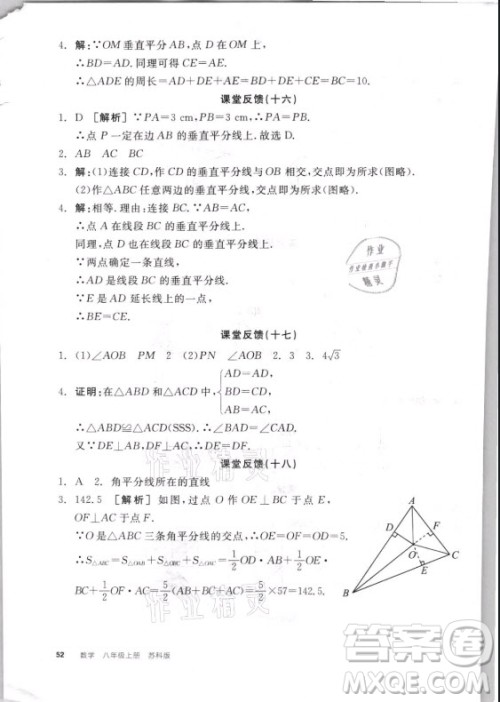 4. 解:∵OM 垂直平分 AB,点 D 在 OM 上,
∴BD=AD. 同理可得 CE=AE.
∴△ADE 的周长=AD+DE+AE=BD+DE+CE=BC=10.
课堂反馈(十六)
1. D [解析] ∵PA=3 cm,PB=3 cm,∴PA=PB.
∴点 P 一定在边 AB 的垂直平分线上. 故选 D.
2. AB AC BC
3. 解:(1)连接 CD,作 CD 的垂直平分线与 OB 相交,交点即为所求(图略).
(2)作△ABC 任意两边的垂直平分线,交点即为所求(图略).
4. 解:相等. 理由:连接 BC. ∵AB=AC,
∴点 A 在线段 BC 的垂直平分线上.
同理,点 D 也在线段 BC 的垂直平分线上.
∵两点确定一条直线,
∴AD 是线段 BC 的垂直平分线.
∵E 是 AD 延长线上的一点,
∴BE=CE.
课堂反馈(十七)
1. (1)∠AOB PM 2 (2)PN ∠AOB 2. 3 3. 4√3
4. 证明:在△ABD 和△ACD 中,{AD=AD, BD=CD, AB=AC,
∴△ABD≌△ACD(SSS). ∴∠BAD=∠CAD.
又∵DE⊥AB,DF⊥AC,∴DE=DF.
课堂反馈(十八)
1. A 2. 角平分线所在的直线
3. 142.5 [解析] 如图,过点 O 作 OE⊥BC 于点 E,
OF⊥AC 于点 F.
∵点 O 是△ABC 三条角平分线的交点,∴OE=OF=OD=5.
∴S△ABC=S△OAB+S△OBC+S△OAC=1/2 OD·AB+1/2 OE·
BC+1/2 OF·AC=5/2(AB+BC+AC)=5/2×57=142.5.
A
D
F
O
C
E
B
作业
精灵
作业精灵
作业精灵
52 数学 八年级上册 苏科版
答案卷
MXQE.COM